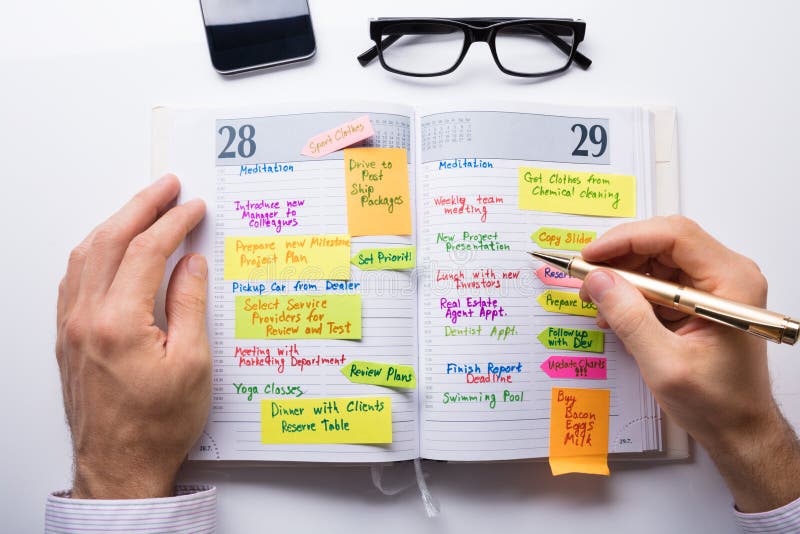 28
Sport Clothes
Meditation
Drive to
Post
Ship
Packages
Introduce new
Manager to
Colleagues
Prepare new Milestone
Project Plan
Set Priorit!
Pickup Car from Dealer
Select Service
Providers for
Review and Test
Meeting with
Marketing Department
Review Plans
Yoga Classes
Dinner with Clients
Reserve Table
28.7.
29
Meditation
Get Clothes from
Chemical cleaning
Weekly team
meeting
New Project
Presentation
Copy Slides
Lunch with new
investors
Reserv
Real Estate
Agent Appt.
Prepare Do
Dentist Appt.
Followup
with Dev
Finish Report
Deadline
Update Charts
!!!
Swimming Pool
Buy
Bacon
Eggs
Milk
29.7.